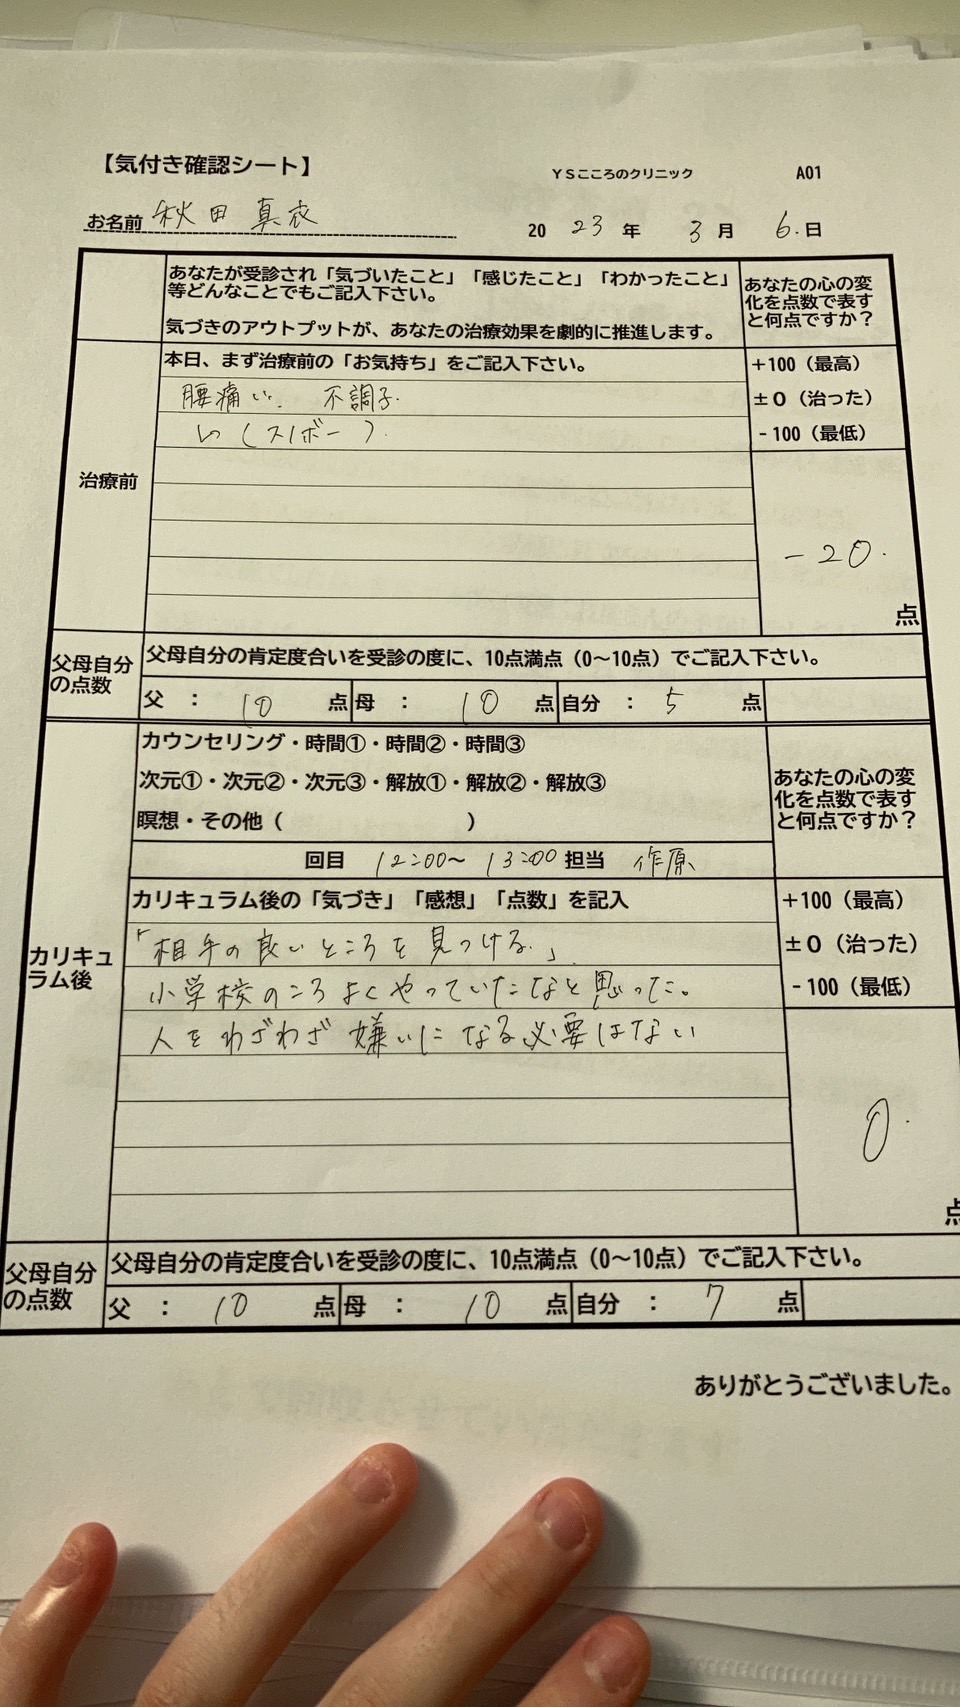 【気付き確認シート】 YSこころのクリニック A01
お名前 秋田 真衣 20 23 年 3 月 6.日
あなたが受診され「気づいたこと」「感じたこと」「わかったこと」
等どんなことでもご記入下さい。
気づきのアウトプットが、あなたの治療効果を劇的に推進します。
あなたの心の変
化を点数で表す
と何点ですか？
治療前
本日、まず治療前の「お気持ち」をご記入下さい。
腰痛い. 不調子.
い(スノボー).
+100（最高）
±0（治った）
-100（最低）
-20. 点
父母自分
の点数
父母自分の肯定度合いを受診の度に、10点満点（0〜10点）でご記入下さい。
父 ： 10 点 母 ： 10 点 自分 ： 5 点
カウンセリング・時間①・時間②・時間③
次元①・次元②・次元③・解放①・解放②・解放③
瞑想・その他（ ）
回目 12:00〜 13:00 担当 作原
あなたの心の変
化を点数で表す
と何点ですか？
カリキュ
ラム後
カリキュラム後の「気づき」「感想」「点数」を記入
「相手の良いところを見つける.」.
小学校のころよくやっていたなと思った。
人をわざわざ嫌いになる必要はない
+100（最高）
±0（治った）
-100（最低）
0. 点
父母自分
の点数
父母自分の肯定度合いを受診の度に、10点満点（0〜10点）でご記入下さい。
父 ： 10 点 母 ： 10 点 自分 ： 7 点
ありがとうございました。